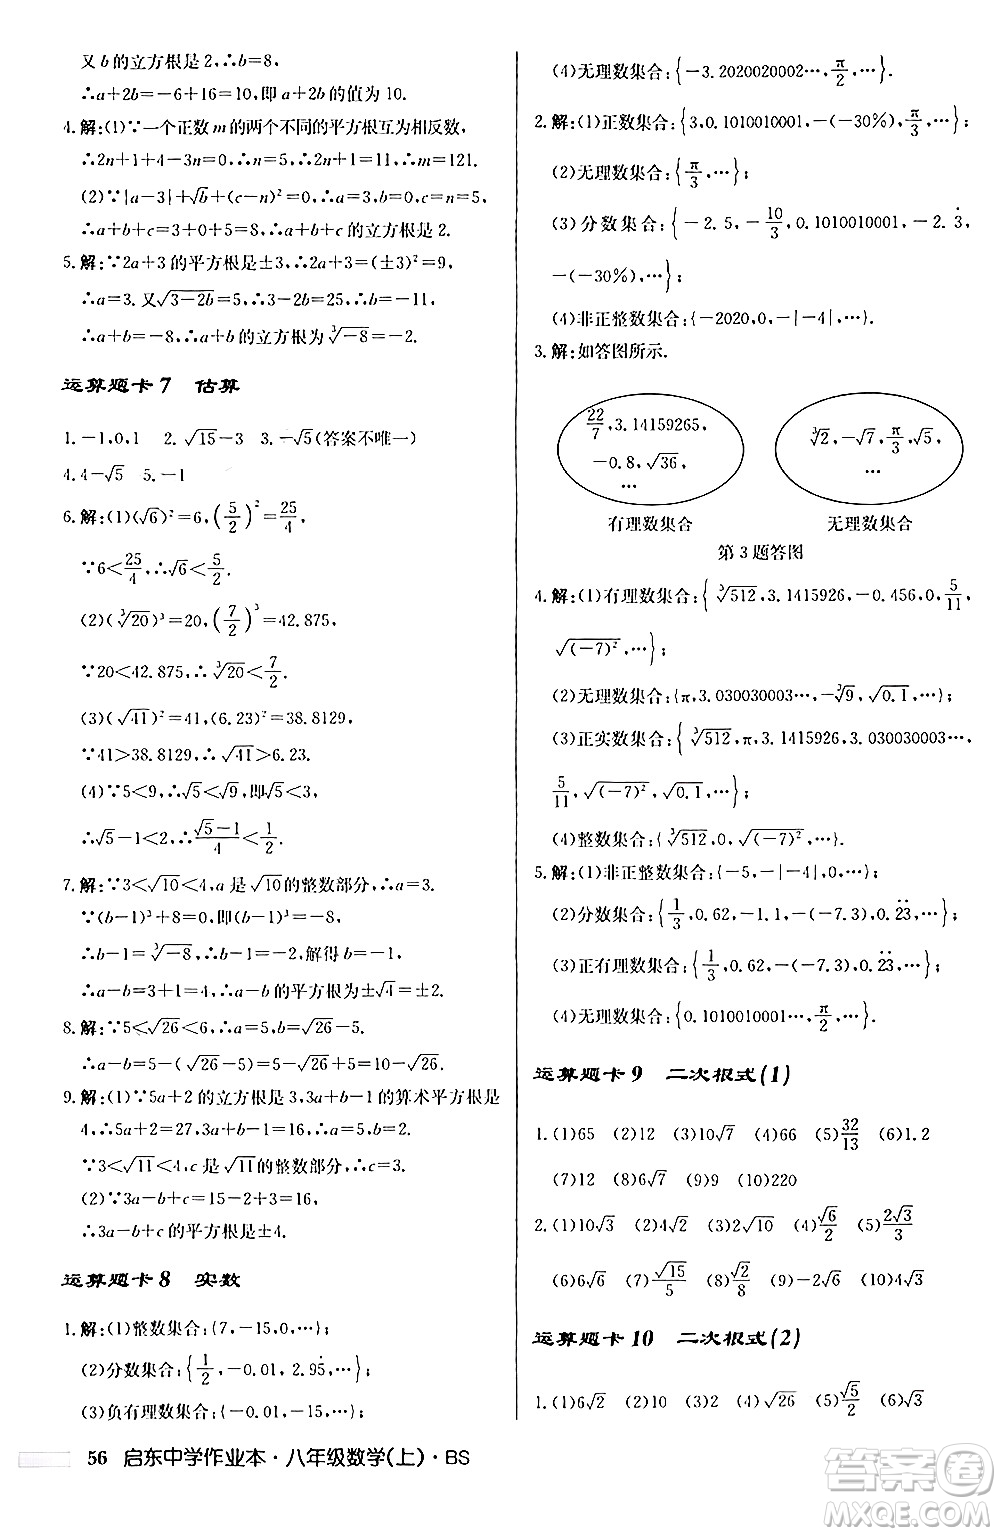 又b的立方根是2,∴b=8,
∴a+2b=-6+16=10,即a+2b的值为10.
4.解:(1)∵一个正数m的两个不同的平方根互为相反数,
∴2n+1+4-3n=0,∴n=5,∴2n+1=11,∴m=121.
(2)∵|a-3|+√b+(c-n)²=0,∴a=3,b=0,c=n=5,
∴a+b+c=3+0+5=8,∴a+b+c的立方根是2.
5.解:∵2a+3的平方根是±3,∴2a+3=(±3)²=9,
∴a=3.又√(3-2b)=5,∴3-2b=25,∴b=-11,
∴a+b=-8,∴a+b的立方根为∛(-8)=-2.
运算题卡7 估算
1.-1,0,1 2.√15-3 3.-√5(答案不唯一)
4.4-√5 5.-1
6.解:(1)(√6)²=6,(5/2)²=25/4,
∵6<25/4,∴√6<5/2.
(2)(∛20)³=20,(7/2)³=42.875,
∵20<42.875,∴∛20<7/2.
(3)(√41)²=41,(6.23)²=38.8129,
∵41>38.8129,∴√41>6.23.
(4)∵5<9,∴√5<√9,即√5<3,
∴√5-1<2,∴(√5-1)/4<1/2.
7.解:∵3<√10<4,a是√10的整数部分,∴a=3.
∵(b-1)³+8=0,∴(b-1)³=-8,
∴b-1=∛(-8)=-2,解得b=-1,
∴a-b=3+1=4,∴a-b的平方根为±√4=±2.
8.解:∵5<√26<6,∴a=5,b=√26-5.
∴a-b=5-(√26-5)=5-√26+5=10-√26.
9.解:(1)∵5a+2的立方根是3,3a+b-1的算术平方根是
4,∴5a+2=27,3a+b-1=16,∴a=5,b=2.
∵3<√11<4,c是√11的整数部分,∴c=3.
(2)∵3a-b+c=15-2+3=16,
∴3a-b+c的平方根是±4.
运算题卡8 实数
1.解:(1)整数集合:{7,-15,0,…};
(2)分数集合:{1/2,-0.01,2.95̇,…};
(3)负有理数集合:{-0.01,-15,…};
56 启东中学作业本·八年级数学(上)·BS
(4)无理数集合:{-3.2020020002…,π/2,…}.
2.解:(1)正数集合:{3,0.1010010001,-(-30%),π/3,…};
(2)无理数集合:{π/3,…};
(3)分数集合:{-2.5,-10/3,0.1010010001,-2.3̇,
-(-30%),…};
(4)非正整数集合:{-2020,0,-|-4|,…}.
3.解:如答图所示.
22/7,3.14159265,
-0.8,√36,
…
∛2,-√7,π/3,√5,
…
有理数集合 无理数集合
第3题答图
4.解:(1)有理数集合:{∛512,3.1415926,-0.456,0,5/11,
√(-7)²,…};
(2)无理数集合:{π,3.030030003…,-∛9,√0.1,…};
(3)正实数集合:{∛512,π,3.1415926,3.030030003…,
5/11,√(-7)²,√0.1,…};
(4)整数集合:{∛512,0,√(-7)²,…}.
5.解:(1)非正整数集合:{-5,-|-12|,0,…};
(2)分数集合:{1/3,0.62,-1.1,-(-7.3),0.2̇3̇,…};
(3)正有理数集合:{1/3,0.62,-(-7.3),0.2̇3̇,…};
(4)无理数集合:{0.1010010001…,π/2,…}.
运算题卡9 二次根式(1)
1.(1)65 (2)12 (3)10√7 (4)66 (5)32/13 (6)1.2
(7)12 (8)6√7 (9)10 (10)220
2.(1)10√3 (2)4√2 (3)2√10 (4)√6/2 (5)2√3/3
(6)6√6 (7)√15/5 (8)√2/2 (9)-2√6 (10)4√3
运算题卡10 二次根式(2)
1.(1)6√2 (2)4√3 (3)2 (4)√26 (5)√5/2 (6)9√2
答案圈
MXQE.COM